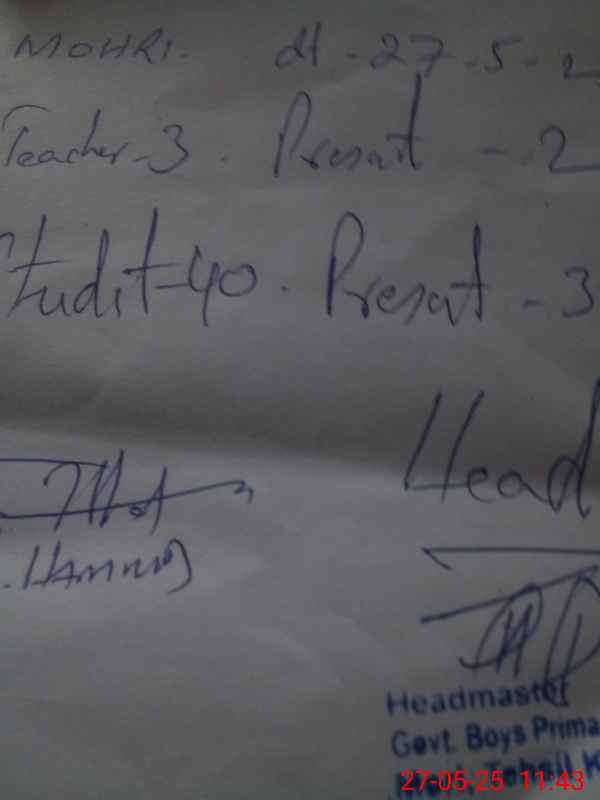 MOHRI. dt - 27 - 5 - 2
Teacher - 3 . Present - 2
Student - 40 . Present - 3
Head
Headmaster
Govt. Boys Prima
Tehsil K
27-05-25 11:43